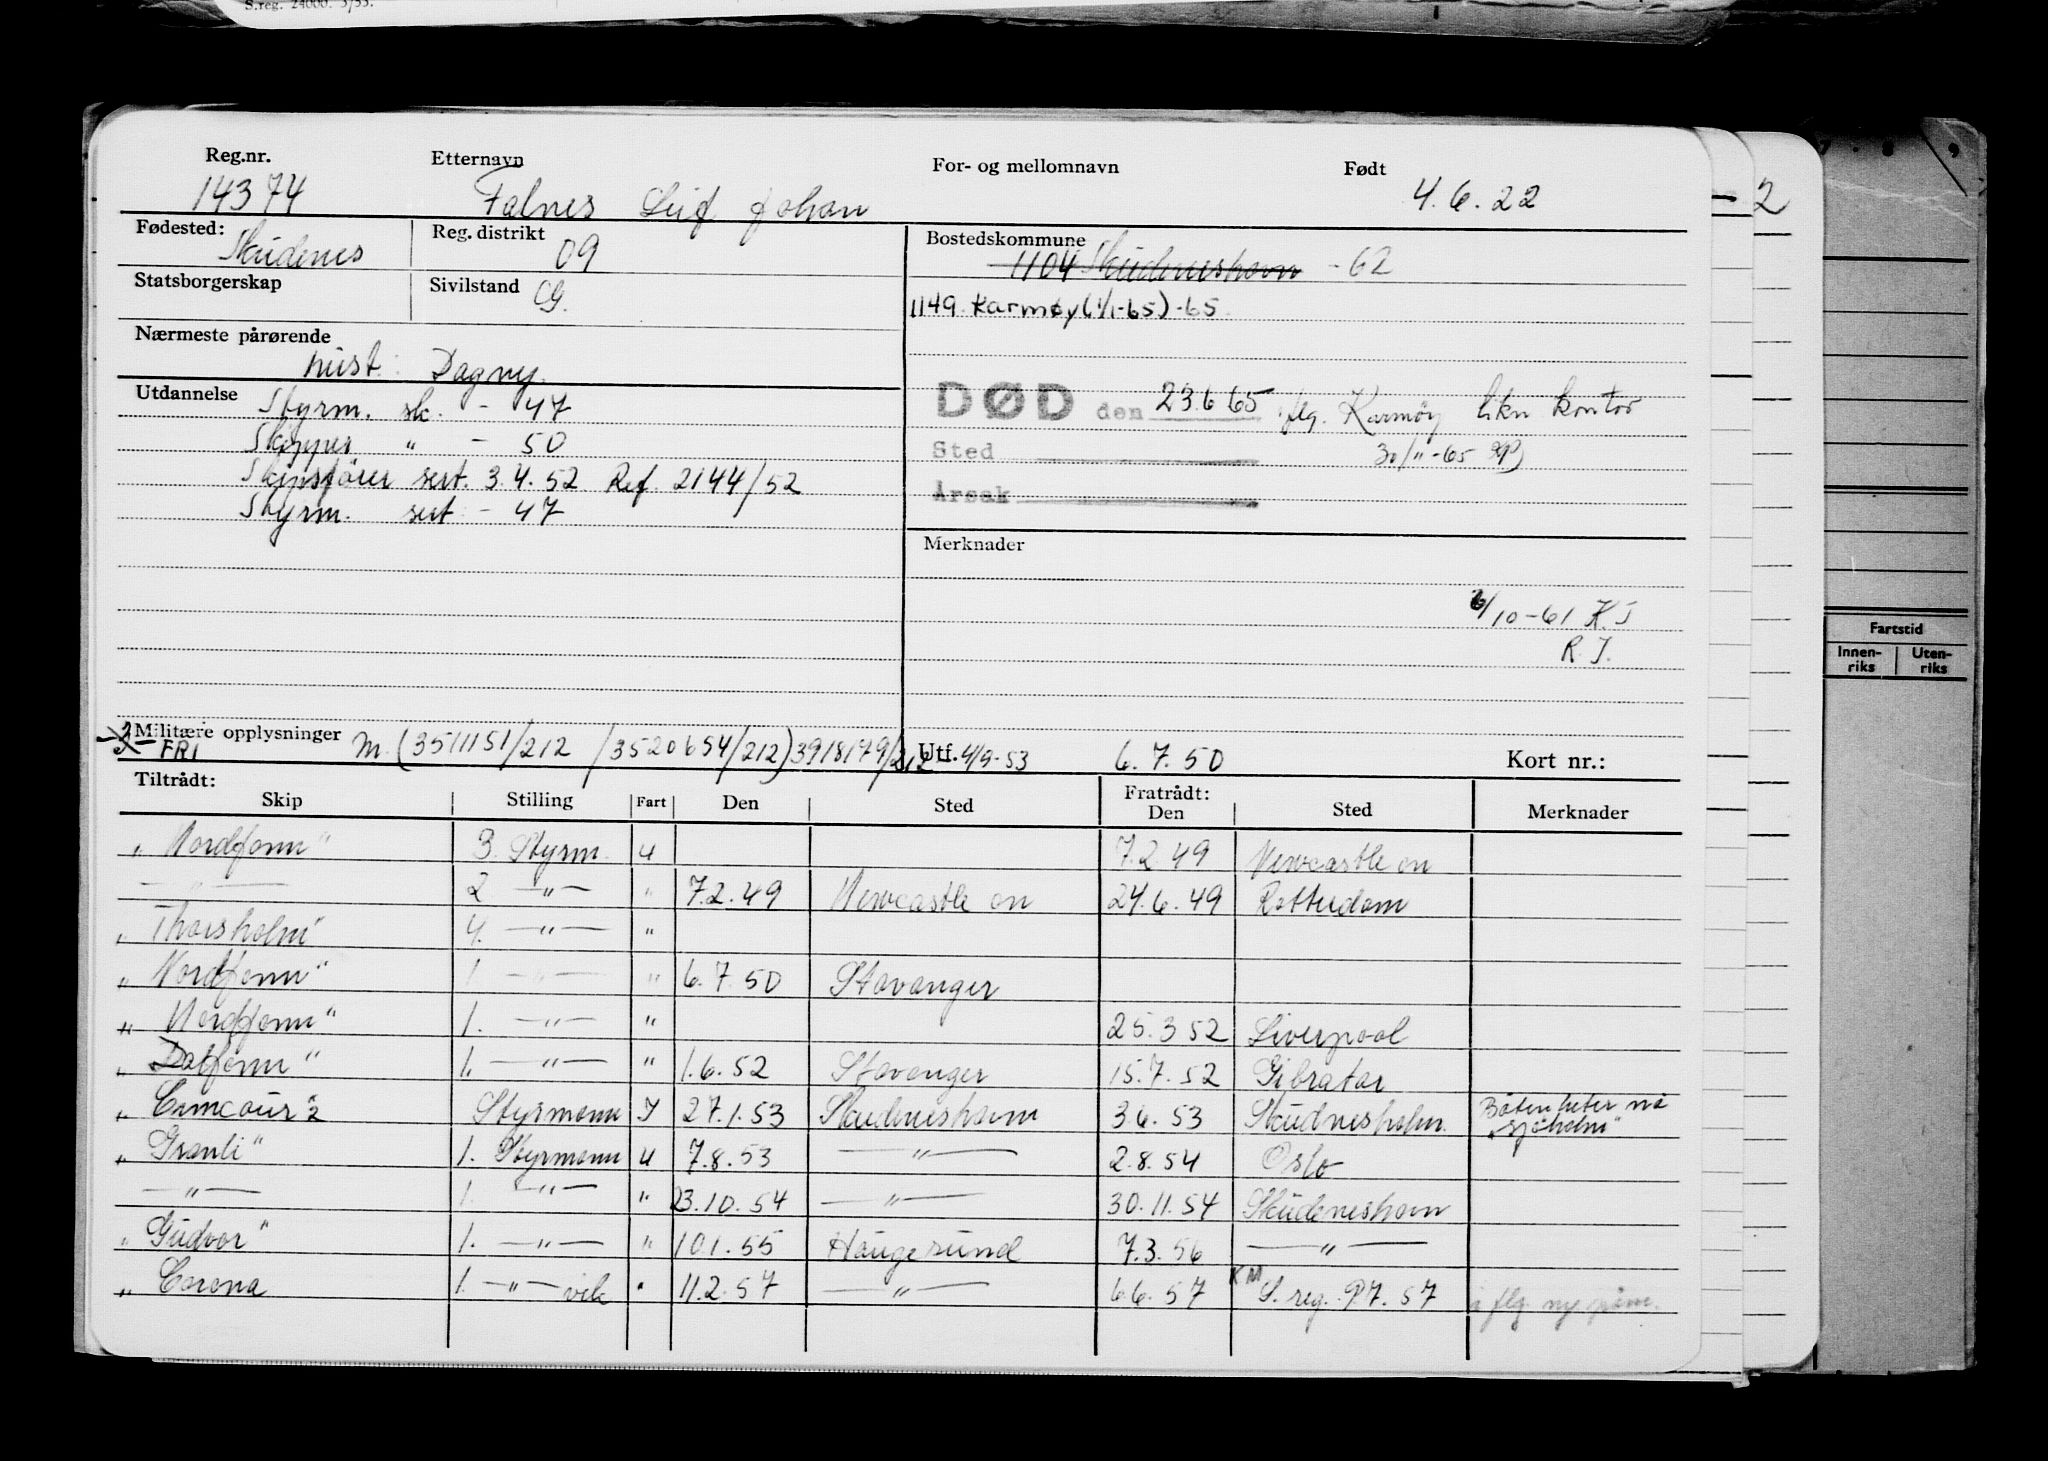 S.reg. 24000. 3/53.
Reg.nr. Etternavn For- og mellomnavn Født
14374 Falnes Leif Johan 4.6.22
2
Fødested: Skudenes Reg. distrikt 09 Bostedskommune
1104 Skudeneshavn - 62
Statsborgerskap Sivilstand G.
1149 Karmøy (1/1-65) -65
Nærmeste pårørende
hust: Dagny.
Utdannelse Styrm. sk. - 47
Skipper " - 50
Skipsfører sert. 3.4.52 Ref. 2144/52
Styrm. sert - 47
DØD den 23.6 65 flg. Karmøy likn kontor
Sted 30/11-65
Årsak
Merknader
6/10-61 K.J
R.J.
Fartstid
Innen-riks Uten-riks
Militære opplysninger M. (3511151/212 /3520654/212) 3918179/212 Utf. 4/9-53 6.7.50 Kort nr.:
FRI
Tiltrådt: Fratrådt:
Skip Stilling Fart Den Sted Den Sted Merknader
"Nordfonn" 3. Styrm. U 7.2.49 Newcastle on
— " — 2 — " — " 7.2.49 Newcastle on 24.6.49 Rotterdam
"Thorsholm" 4. — " — "
"Nordfonn" 1. — " — " 6.7.50 Stavanger
"Nordfonn" 1. — " — " 25.3 52 Liverpool
"Dalfonn" 1. — " — " 1.6.52 Stavanger 15.7.52 Gibratar
Styrmann I 27.1.53 Skudeneshavn 3.6.53 Skudnesholm. Båten heter nå "Sjøholm"
"Granli" 1. Styrmann U 7.8.53 — " — 2.8.54 Oslo
— " — 1. — " — " 23.10.54 — " — 30.11.54 Skudeneshavn
"Gudvor" 1. — " — " 10.1.55 Haugesund 7.3.56 — " —
"Corona 1. — " — vik " 11.2.57 — " — 6.6.57 KM S. reg. 97.57 flg. ny